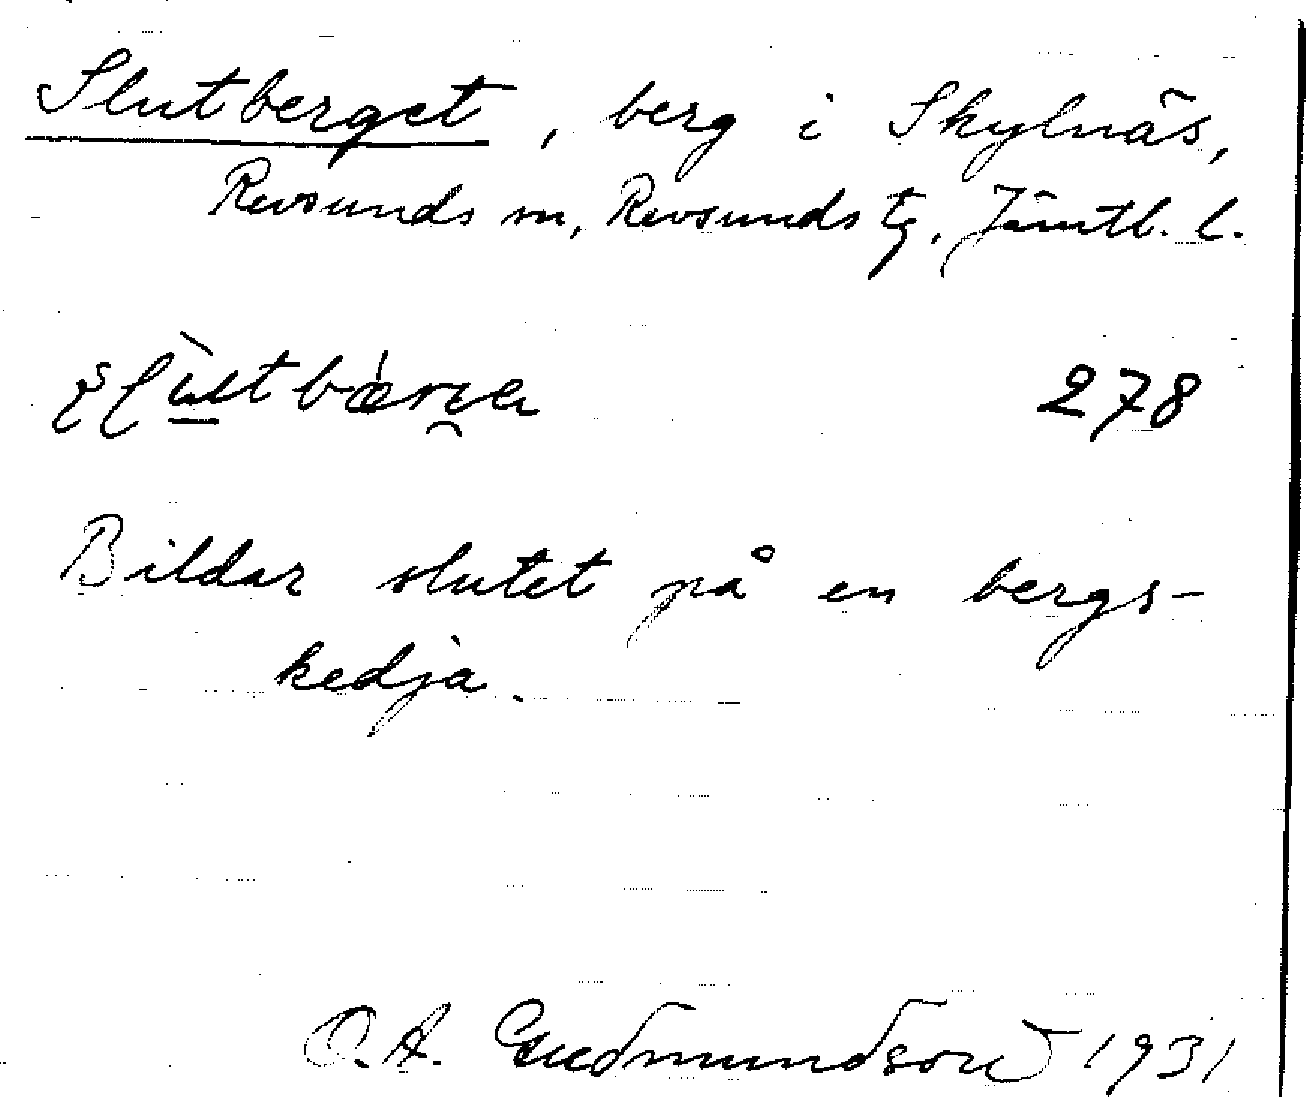 Slutberget, berg i Skylnäs,
Revsunds sn, Revsunds tg, Jämtl. l.
278
Bildar slutet på en bergs-
kedja.
O. A. Gudmundson 1931